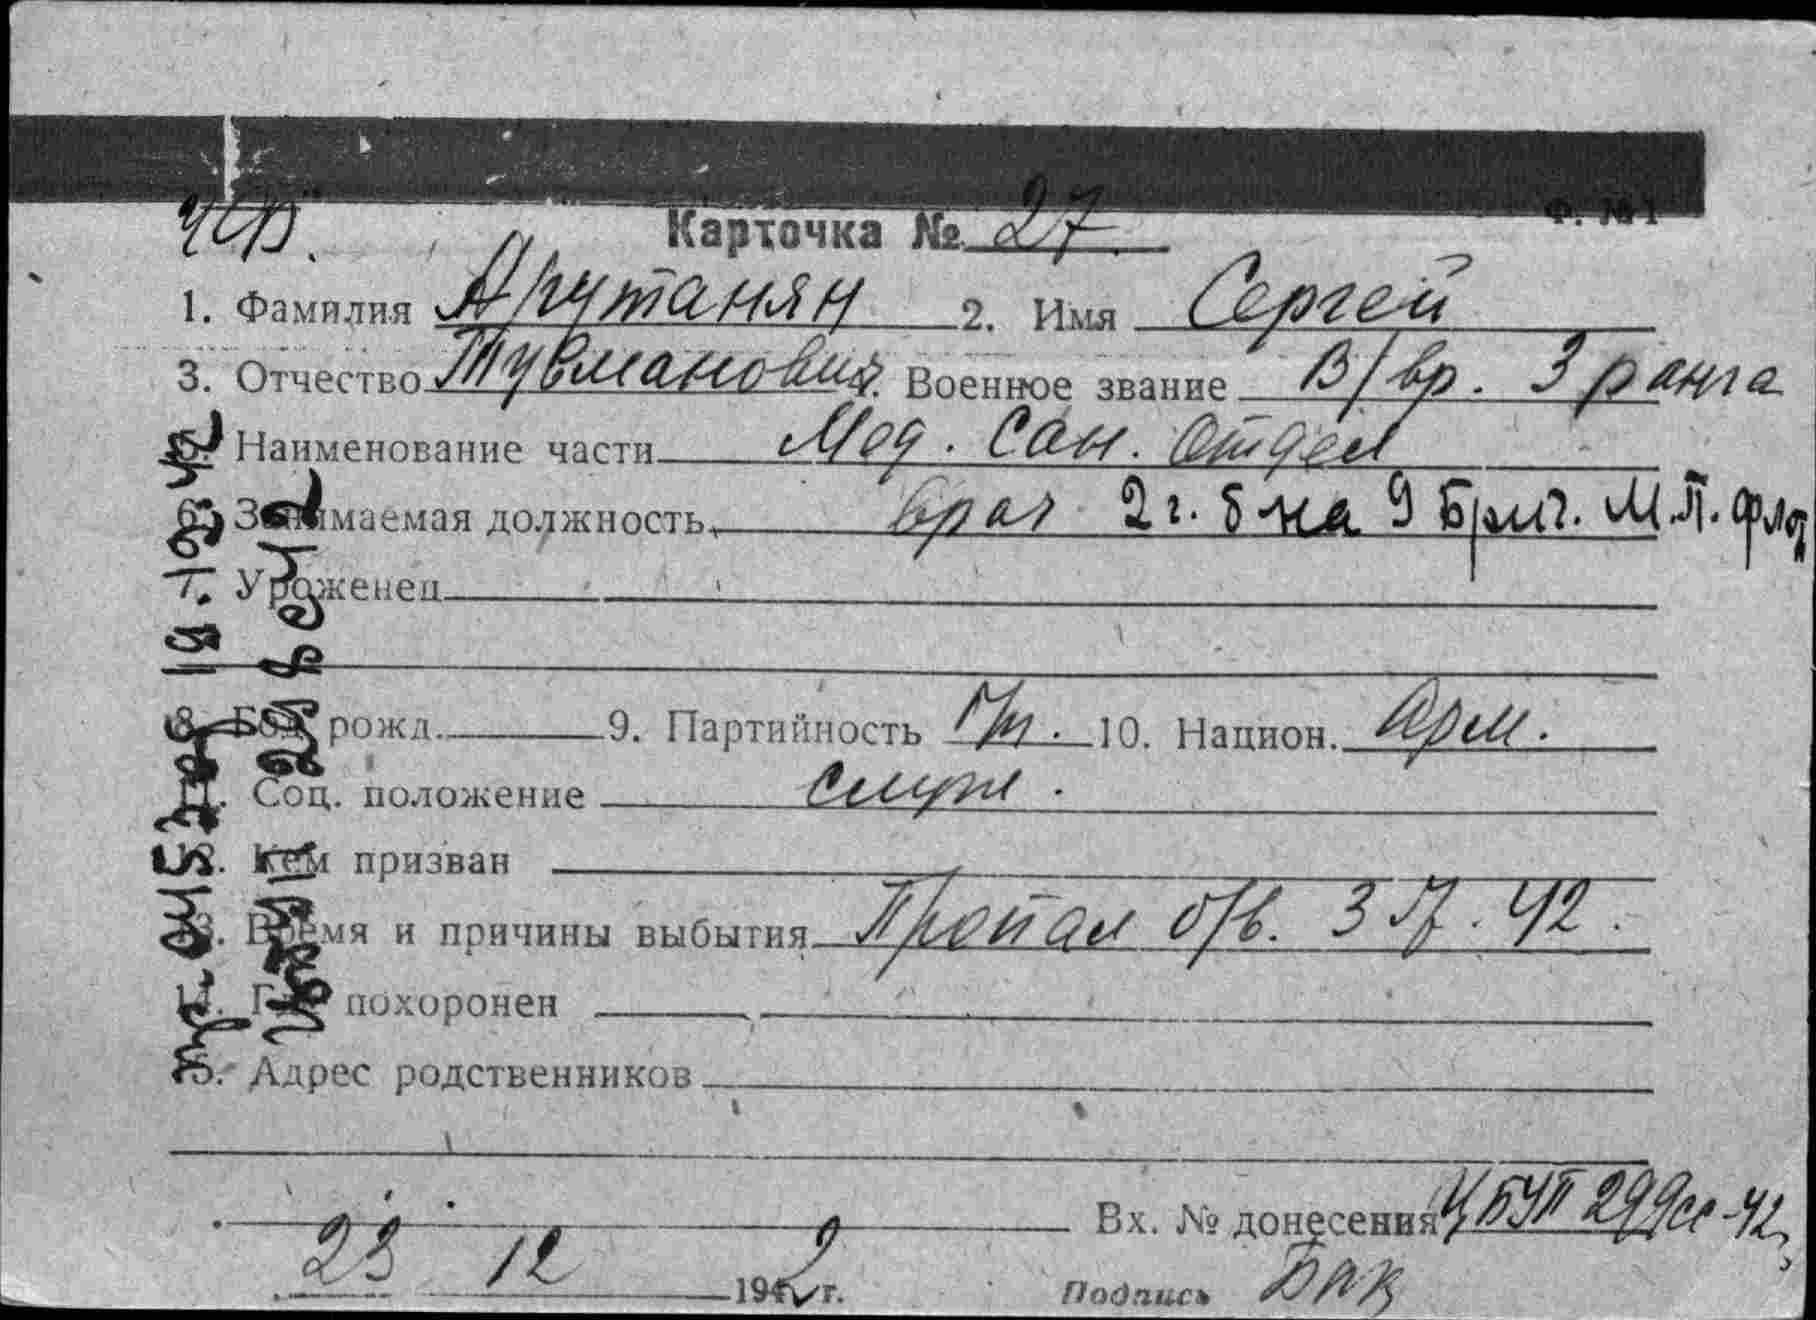 ЧФ.
Ф. №1
Карточка № 27
1. Фамилия Арутанян 2. Имя Сергей
3. Отчество Тувманович 4. Военное звание В/вр. 3 ранга
5. Наименование части Мед. Сан. Отдел
6. Занимаемая должность врач 2 г. б-на 9 Бриг. М.П. флот
7. Уроженец
8. Год рожд. 9. Партийность б/п. 10. Национ. Арм.
11. Соц. положение служ.
12. Кем призван
13. Время и причины выбытия Пропал б/в. 3.7.42.
14. Где похоронен
15. Адрес родственников
Вх. № донесения ЦБУП 299сс-42
23 12 1942 г. Подпись